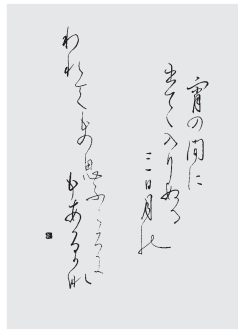 宵の間に
出てゝ入りぬる
三日月の
われてもの思ふころに
もあるかな